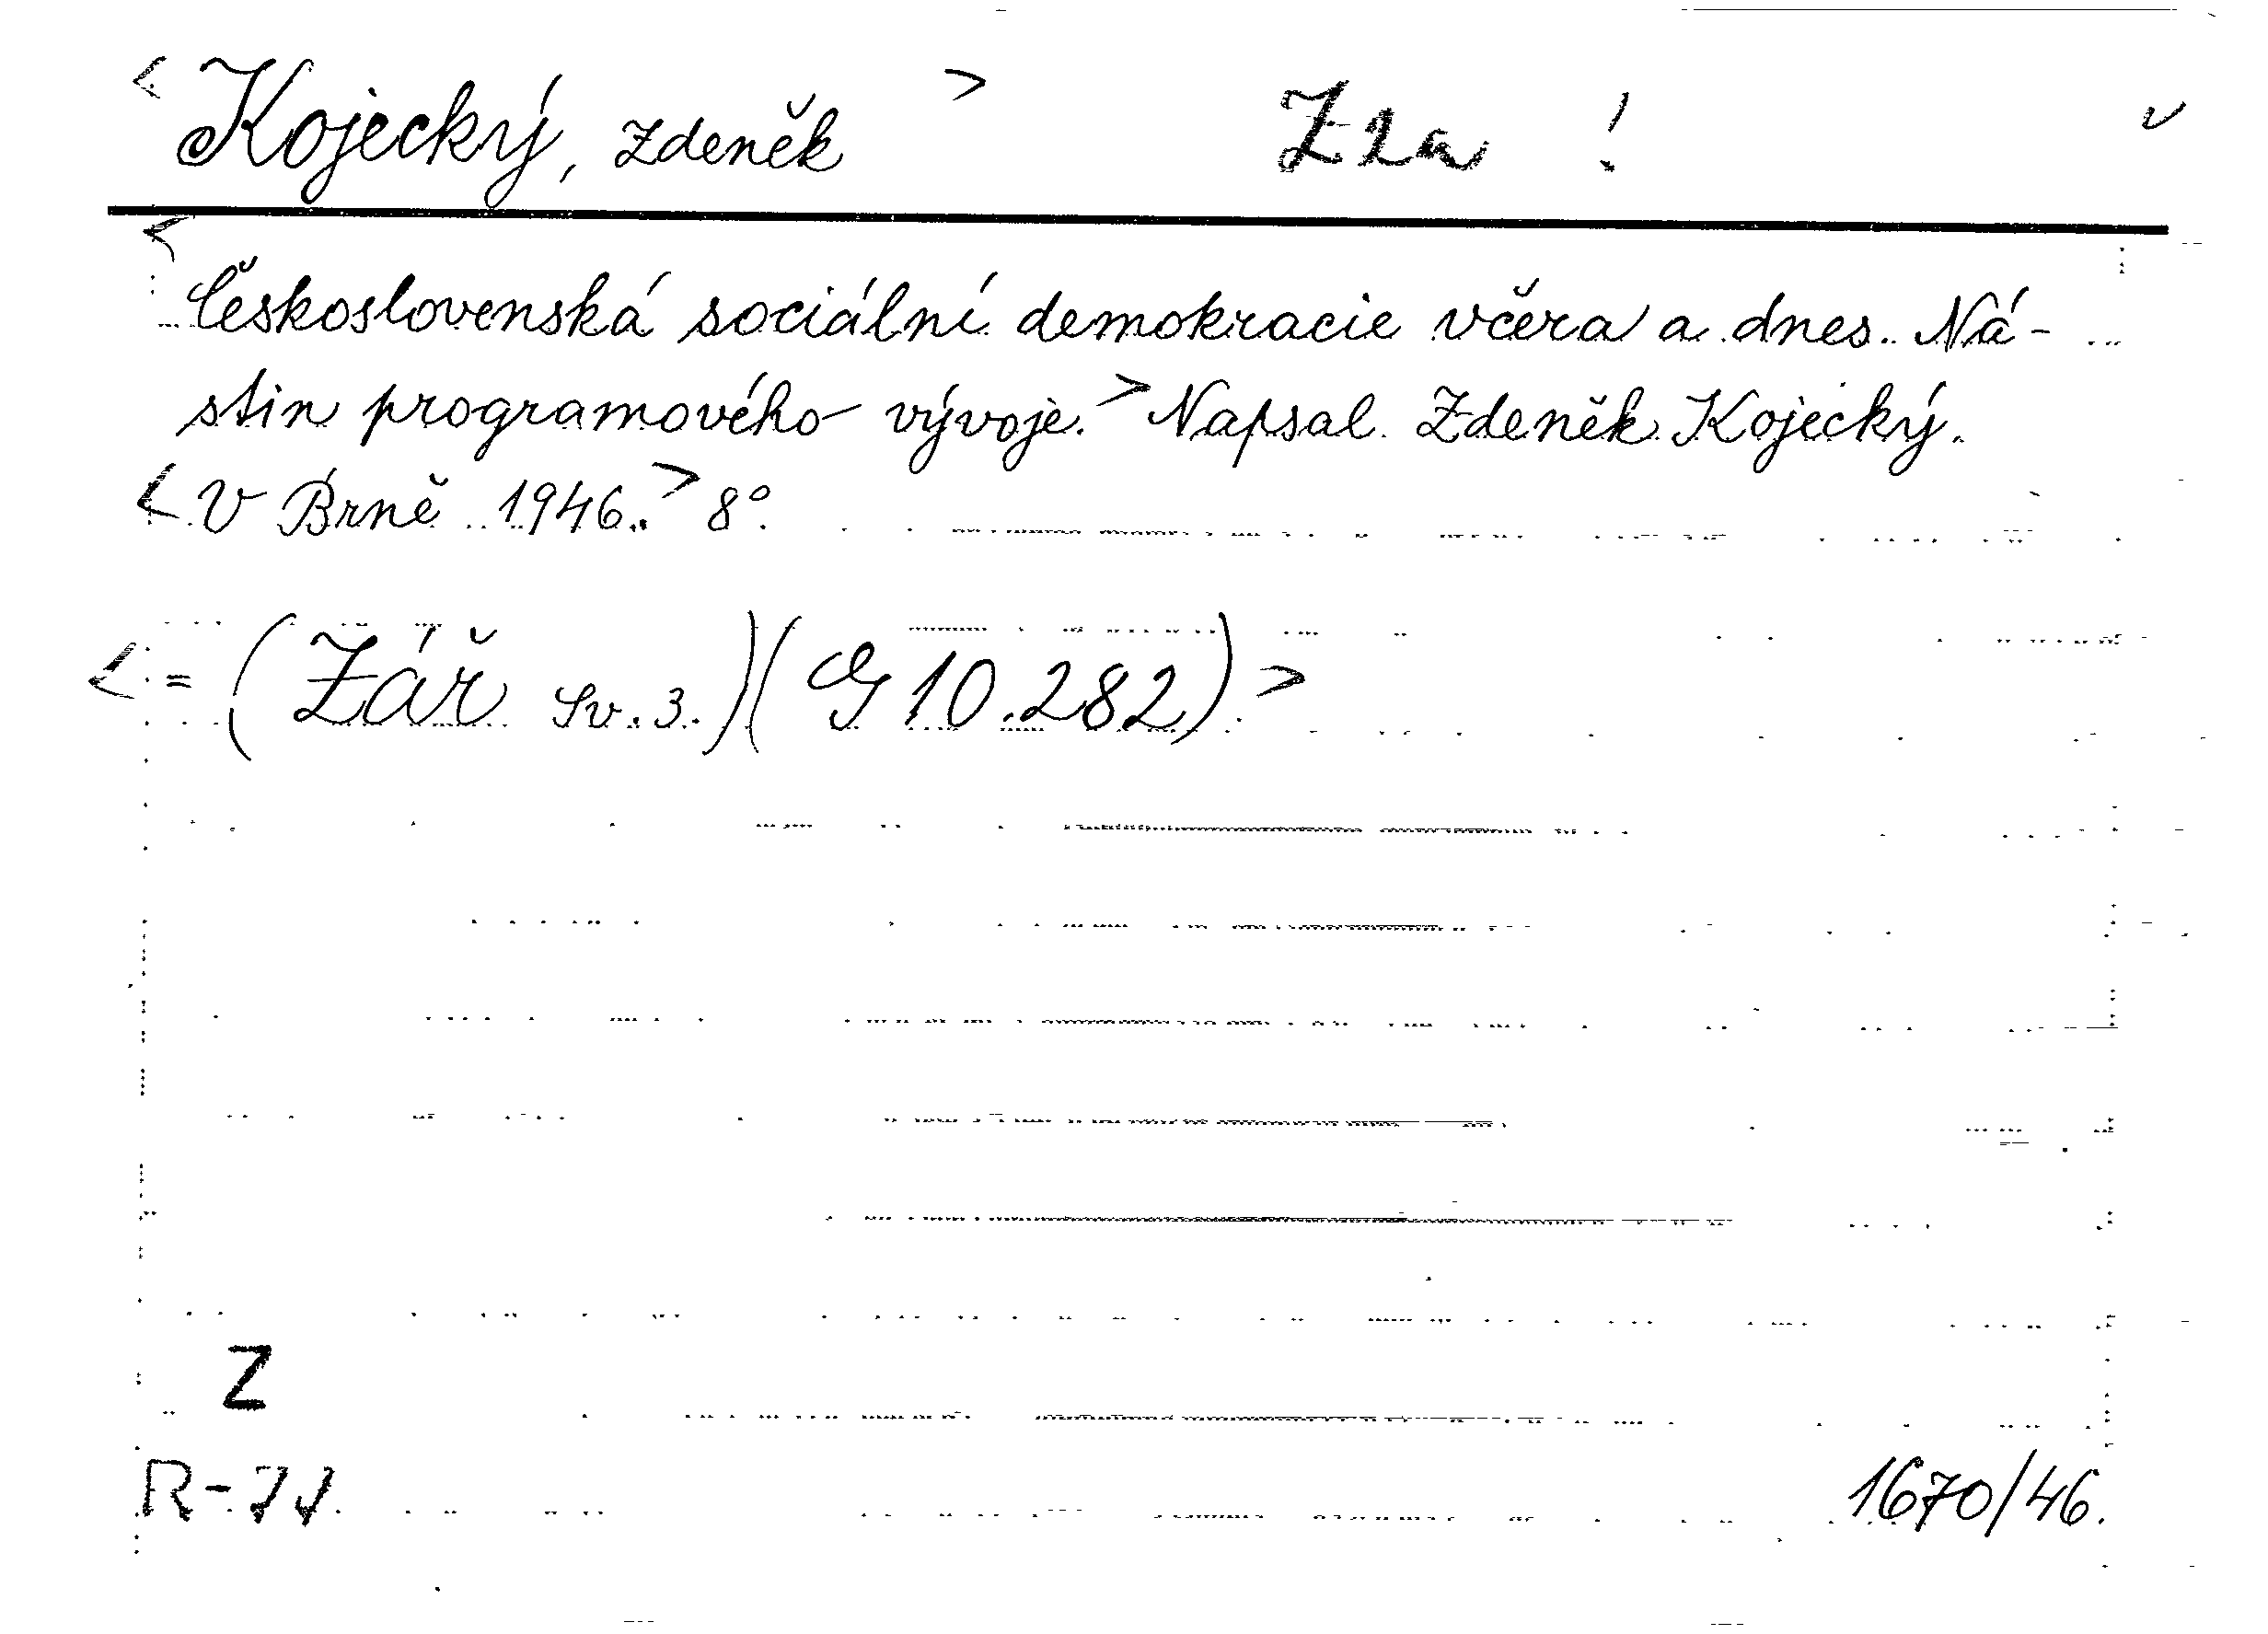 < Kojecký, Zdeněk > Z 2a !
< Československá sociální demokracie včera a dnes. Ná-
stin programového vývoje. > Napsal Zdeněk Kojecký.
< V Brně 1946. > 8°.
< = (Zář Sv. 3.) (G 10.282) >
Z
R-77
1670/46.